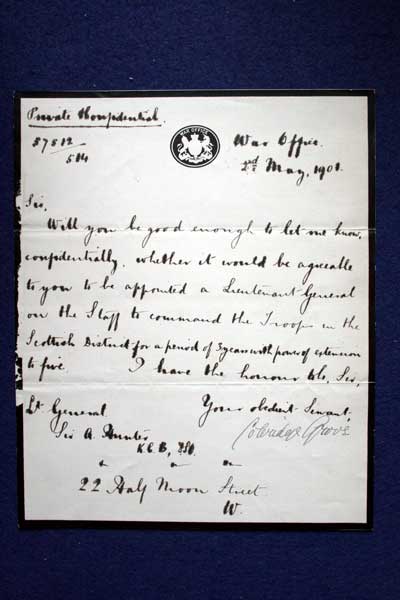 Private & Confidential.
57512
/ 514
WAR OFFICE
War Office.
2nd May, 1901.
Sir,
Will you be good enough to let me know,
confidentially, whether it would be agreeable
to you to be appointed a Lieutenant General
on the Staff to command the Troops in the
Scottish District for a period of 3 years with power of extension
to five. I have the honour to be, Sir,
Your obedient Servant,
Coleridge Grove
Lt General
Sir A. Hunter
K.C.B., DSO.
22 Half Moon Street
W.